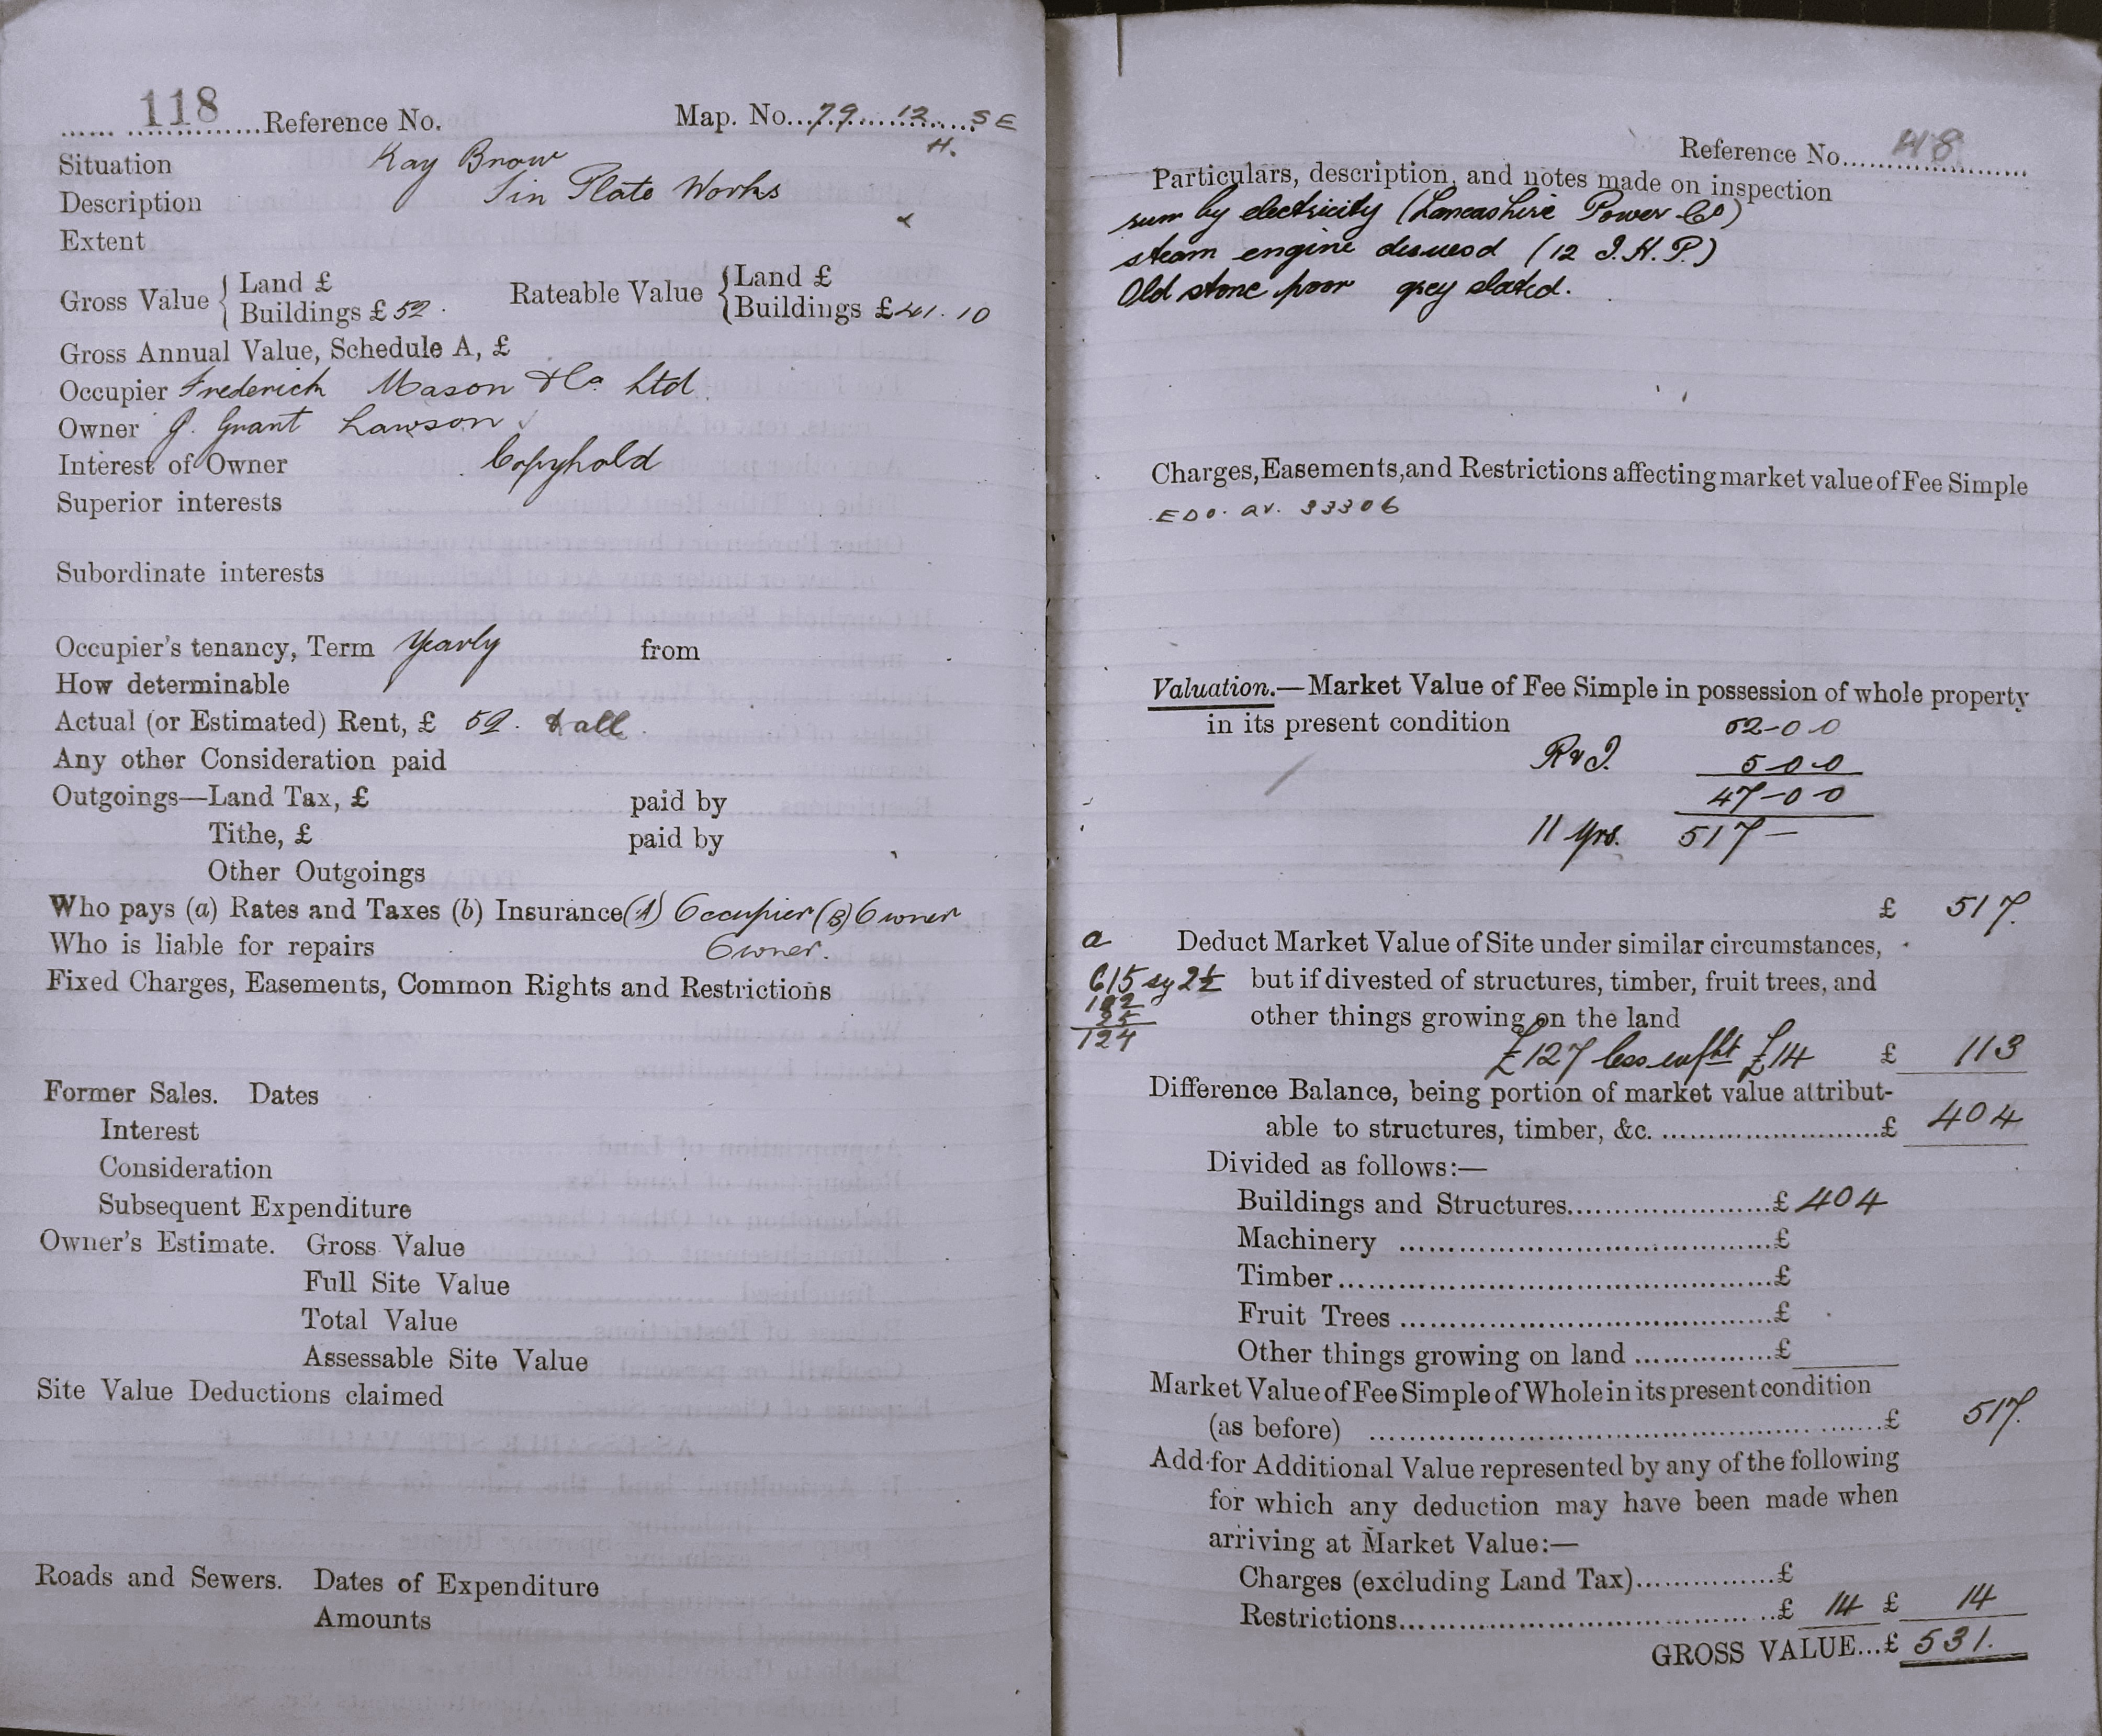 118 Reference No. Map. No. 79 12 SE
H.
Situation Kay Brow
Description Tin Plate Works
Extent
Gross Value { Land £
Buildings £ 52. Rateable Value { Land £
Buildings £ 41. 10
Gross Annual Value, Schedule A, £
Occupier Frederick Mason & Co Ltd.
Owner J. Grant Lawson
Interest of Owner Copyhold
Superior interests
Subordinate interests
Occupier's tenancy, Term Yearly from
How determinable
Actual (or Estimated) Rent, £ 52. & all.
Any other Consideration paid
Outgoings—Land Tax, £ paid by
Tithe, £ paid by
Other Outgoings
Who pays (a) Rates and Taxes (b) Insurance (A) Occupier (B) Owner
Who is liable for repairs Owner.
Fixed Charges, Easements, Common Rights and Restrictions
Former Sales. Dates
Interest
Consideration
Subsequent Expenditure
Owner's Estimate. Gross Value
Full Site Value
Total Value
Assessable Site Value
Site Value Deductions claimed
Roads and Sewers. Dates of Expenditure
Amounts
Reference No. 118
Particulars, description, and notes made on inspection
run by electricity (Lancashire Power Co)
steam engine disused (12 I.H.P.)
Old stone poor grey slated.
Charges, Easements, and Restrictions affecting market value of Fee Simple
EDO. av. 33306
Valuation.—Market Value of Fee Simple in possession of whole property
in its present condition 52-0 0
R & I. 5-0-0
47-0 0
11 yrs. 517 —
£ 517.
a Deduct Market Value of Site under similar circumstances,
615 sy 2½ but if divested of structures, timber, fruit trees, and
other things growing on the land
124
£127 less enfht £14 £ 113
Difference Balance, being portion of market value attribut-
able to structures, timber, &c. £ 404
Divided as follows:—
Buildings and Structures £ 404
Machinery £
Timber £
Fruit Trees £
Other things growing on land £
Market Value of Fee Simple of Whole in its present condition
(as before) £ 517.
Add for Additional Value represented by any of the following
for which any deduction may have been made when
arriving at Market Value:—
Charges (excluding Land Tax) £
Restrictions £ 14 £ 14
GROSS VALUE...£ 531.